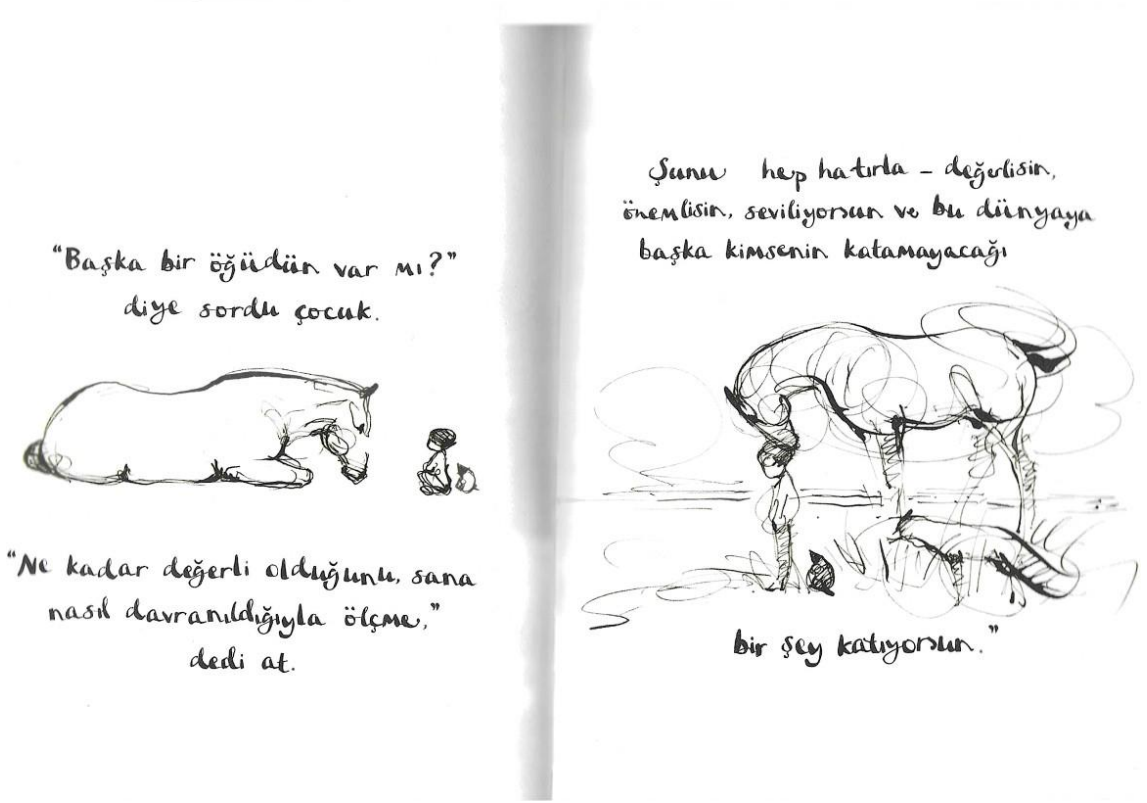 "Başka bir öğüdün var mı?"
diye sordu çocuk.
"Ne kadar değerli olduğunu, sana
nasıl davranıldığıyla ölçme,"
dedi at.
Şunu hep hatırla – değerlisin,
önemlisin, seviliyorsun ve bu dünyaya
başka kimsenin katamayacağı
bir şey katıyorsun."